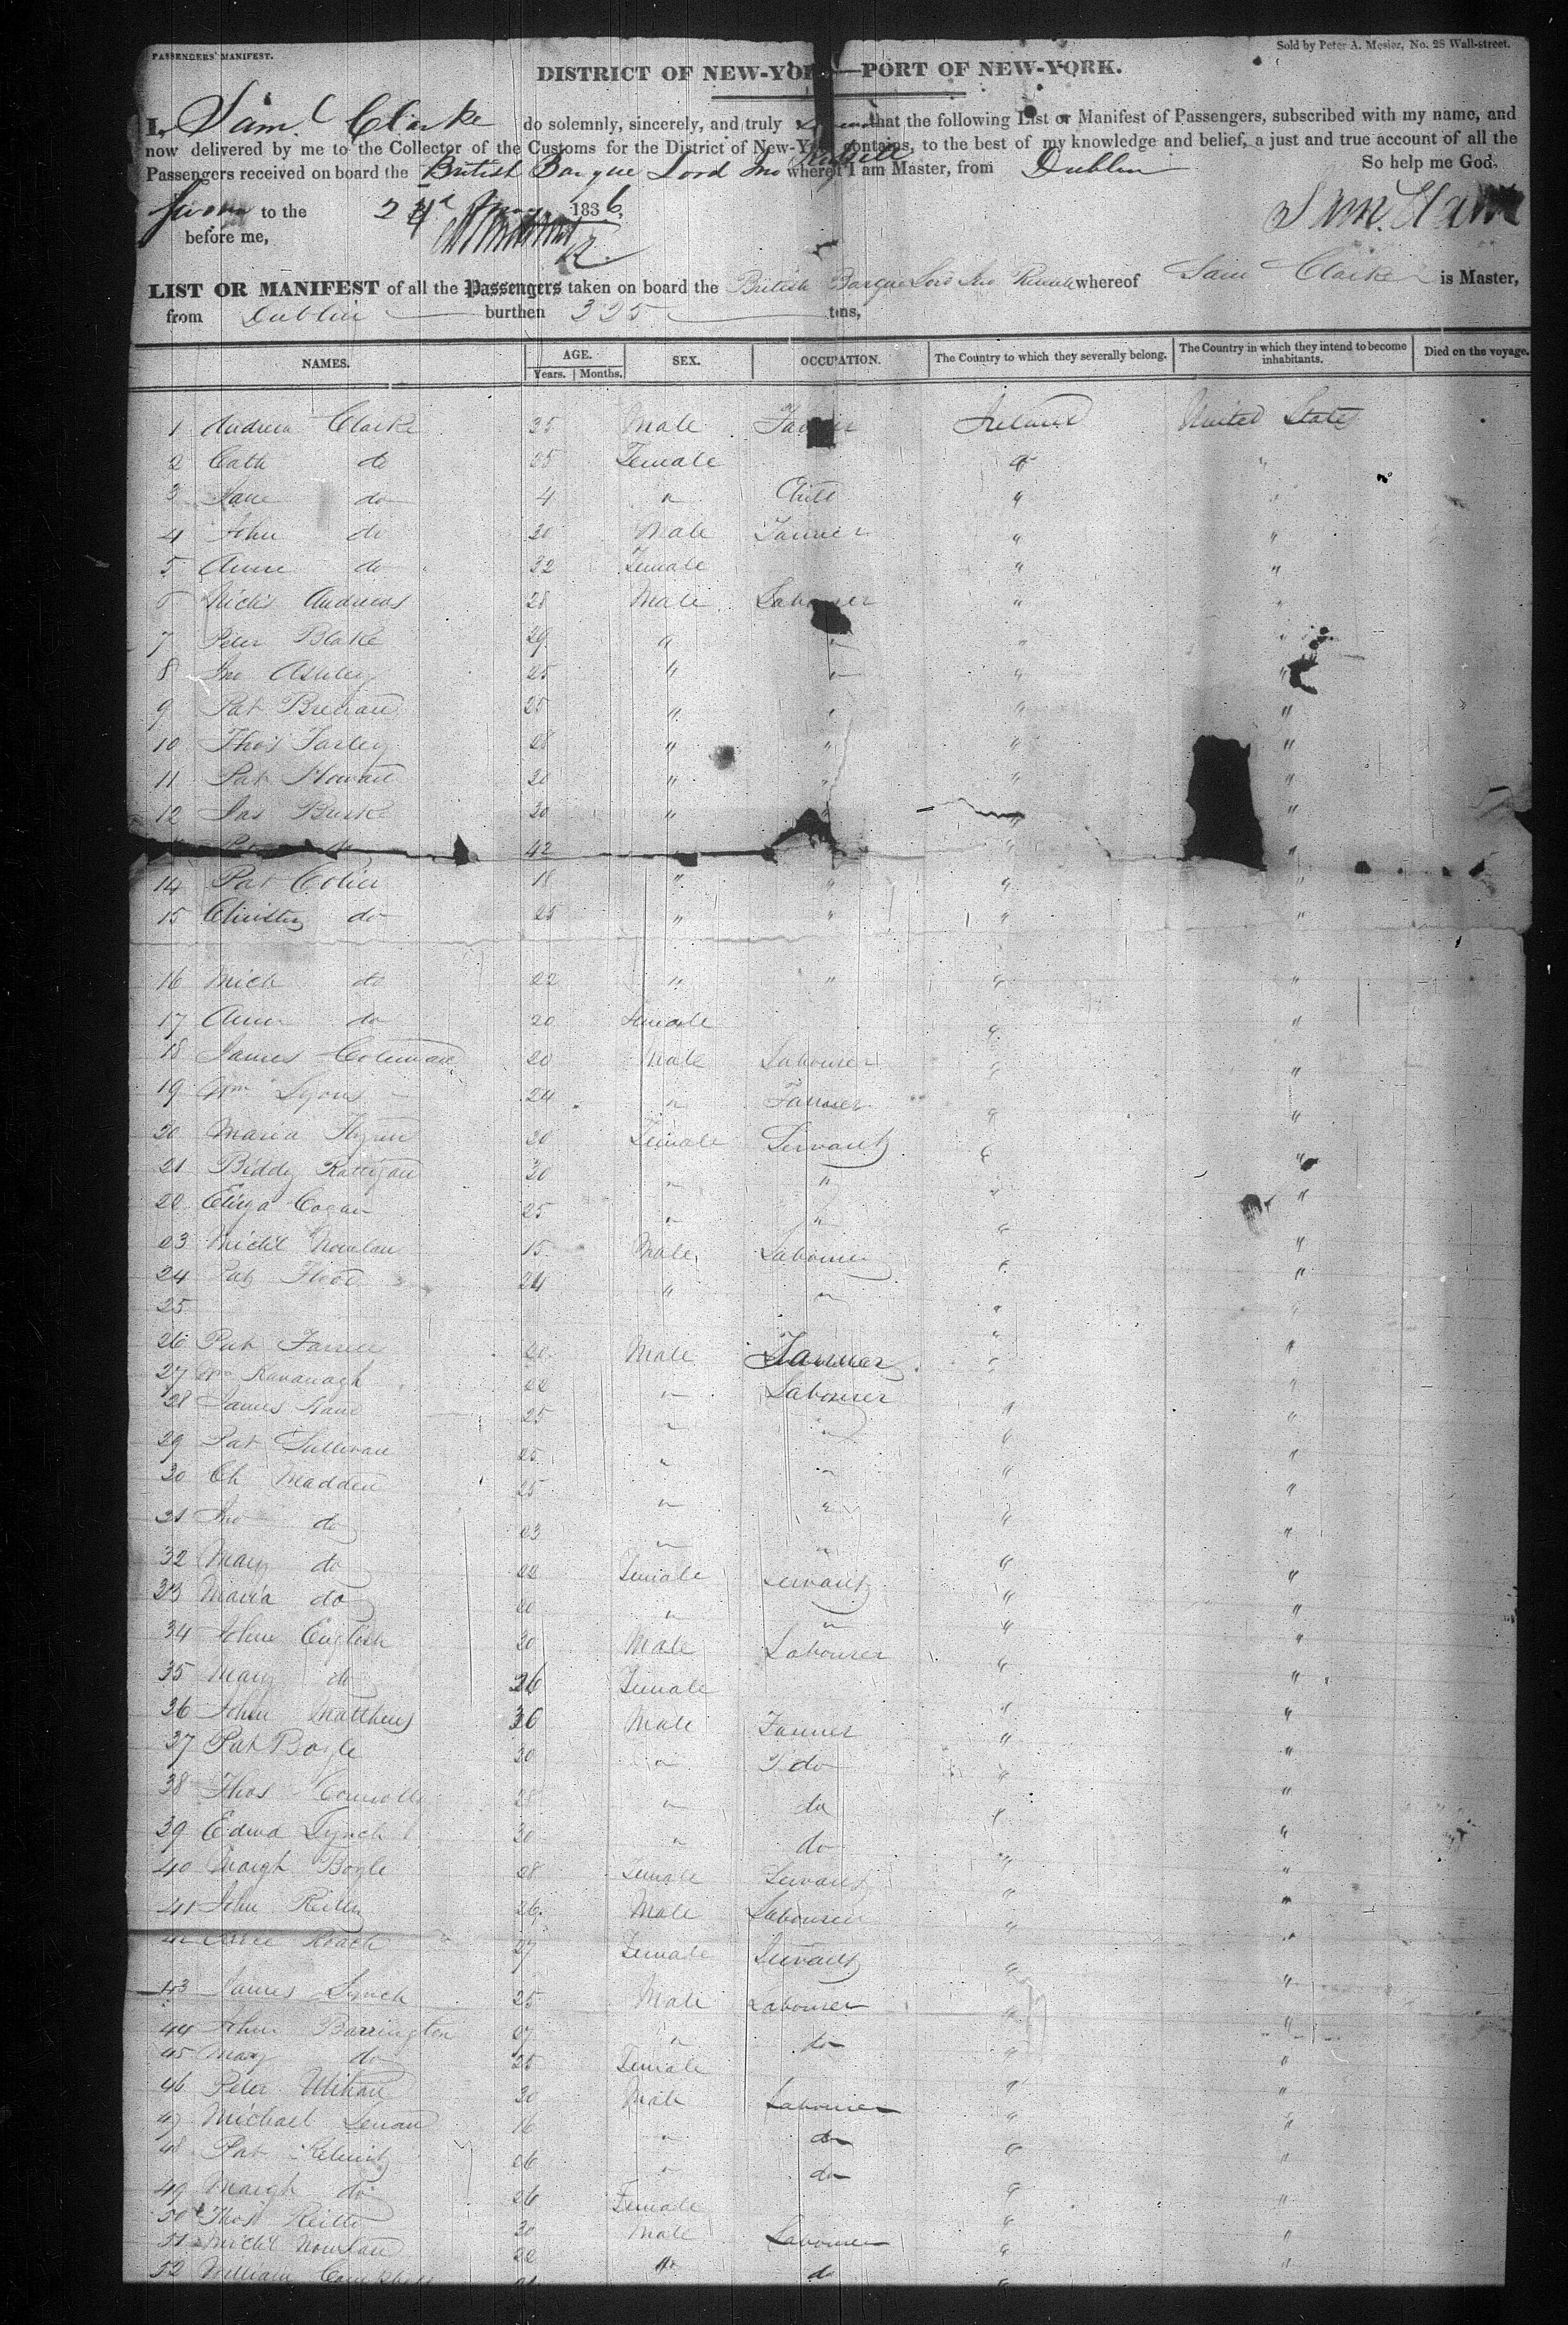 PASSENGERS' MANIFEST.
Sold by Peter A. Mesier, No. 28 Wall-street.
DISTRICT OF NEW-YORK—PORT OF NEW-YORK.
I, Saml Clarke do solemnly, sincerely, and truly that the following List or Manifest of Passengers, subscribed with my name, and
now delivered by me to the Collector of the Customs for the District of New-York contains, to the best of my knowledge and belief, a just and true account of all the
Passengers received on board the British Barque Lord Jno Russell whereof I am Master, from Dublin So help me God.
Sworn to the 1836.
before me,
Sam. Clarke
LIST OR MANIFEST of all the Passengers taken on board the British Barque Lord Jno Russell whereof Sam Clarke is Master,
from Dublin burthen 325 tons,
NAMES. AGE. SEX. OCCUPATION. The Country to which they severally belong. The Country in which they intend to become inhabitants. Died on the voyage.
Years. Months.
1 Andrew Clarke 35 Male Farmer Ireland United States
2 Cath do 35 Female " "
3 Jane do 4 " Child " "
4 John do 30 Male Farmer " "
5 Anne do 32 Female " "
6 Andrews 28 Male Labourer " "
7 Peter Blake 29 " " " "
8 Jno Ashley 25 " " " "
9 Pat Brenan 25 " " " "
10 Thos Farley 28 " " " "
11 Pat 20 " " " "
12 Jas Burke 30 " " " "
do 42 " "
14 Pat Colier 18 " " " "
15 do 25 " " " "
16 Mich do 22 " " " "
17 Ann do 20 Female " "
18 James Coleman 20 Male Labourer " "
19 Wm Lyons 24 " Farmer " "
20 Maria Flynn 20 Female Servant " "
21 Biddy Rattigan 20 " " " "
22 Eliza Cogan 25 " " " "
23 Michl Nowlan 15 Male Labourer " "
24 Pat Flood 24 " " " "
25 " "
26 Pat Farrell 20 Male Farmer " "
27 Wm Kavanagh 22 " Labourer " "
28 James 25 " " " "
29 Pat Sullivan 25 " " " "
30 Ch Madden 25 " " " "
31 Jno do 23 " " " "
32 Mary do 22 Female Servant " "
33 Maria do 20 " " " "
34 John English 30 Male Labourer " "
35 Mary do 26 Female " "
36 John Matthews 36 Male Farmer " "
37 Pat Boyle 30 " do " "
38 Thos Connolly 28 " do " "
39 Edwd Lynch 30 " do " "
40 Margh Boyle 28 Female Servant " "
41 John Reilly 26 Male Labourer " "
42 Roach 27 Female Servant " "
43 James Lynch 25 Male Labourer " "
44 John Barrington 27 " do " "
45 Mary do 25 Female " "
46 Peter 30 Male Labourer " "
47 Michael 16 " do " "
48 Pat 26 " do " "
49 Margh do 26 Female " "
50 Thos 30 Male " "
51 Michl Nowlan 22 Labourer " "
52 William Campbell " do "